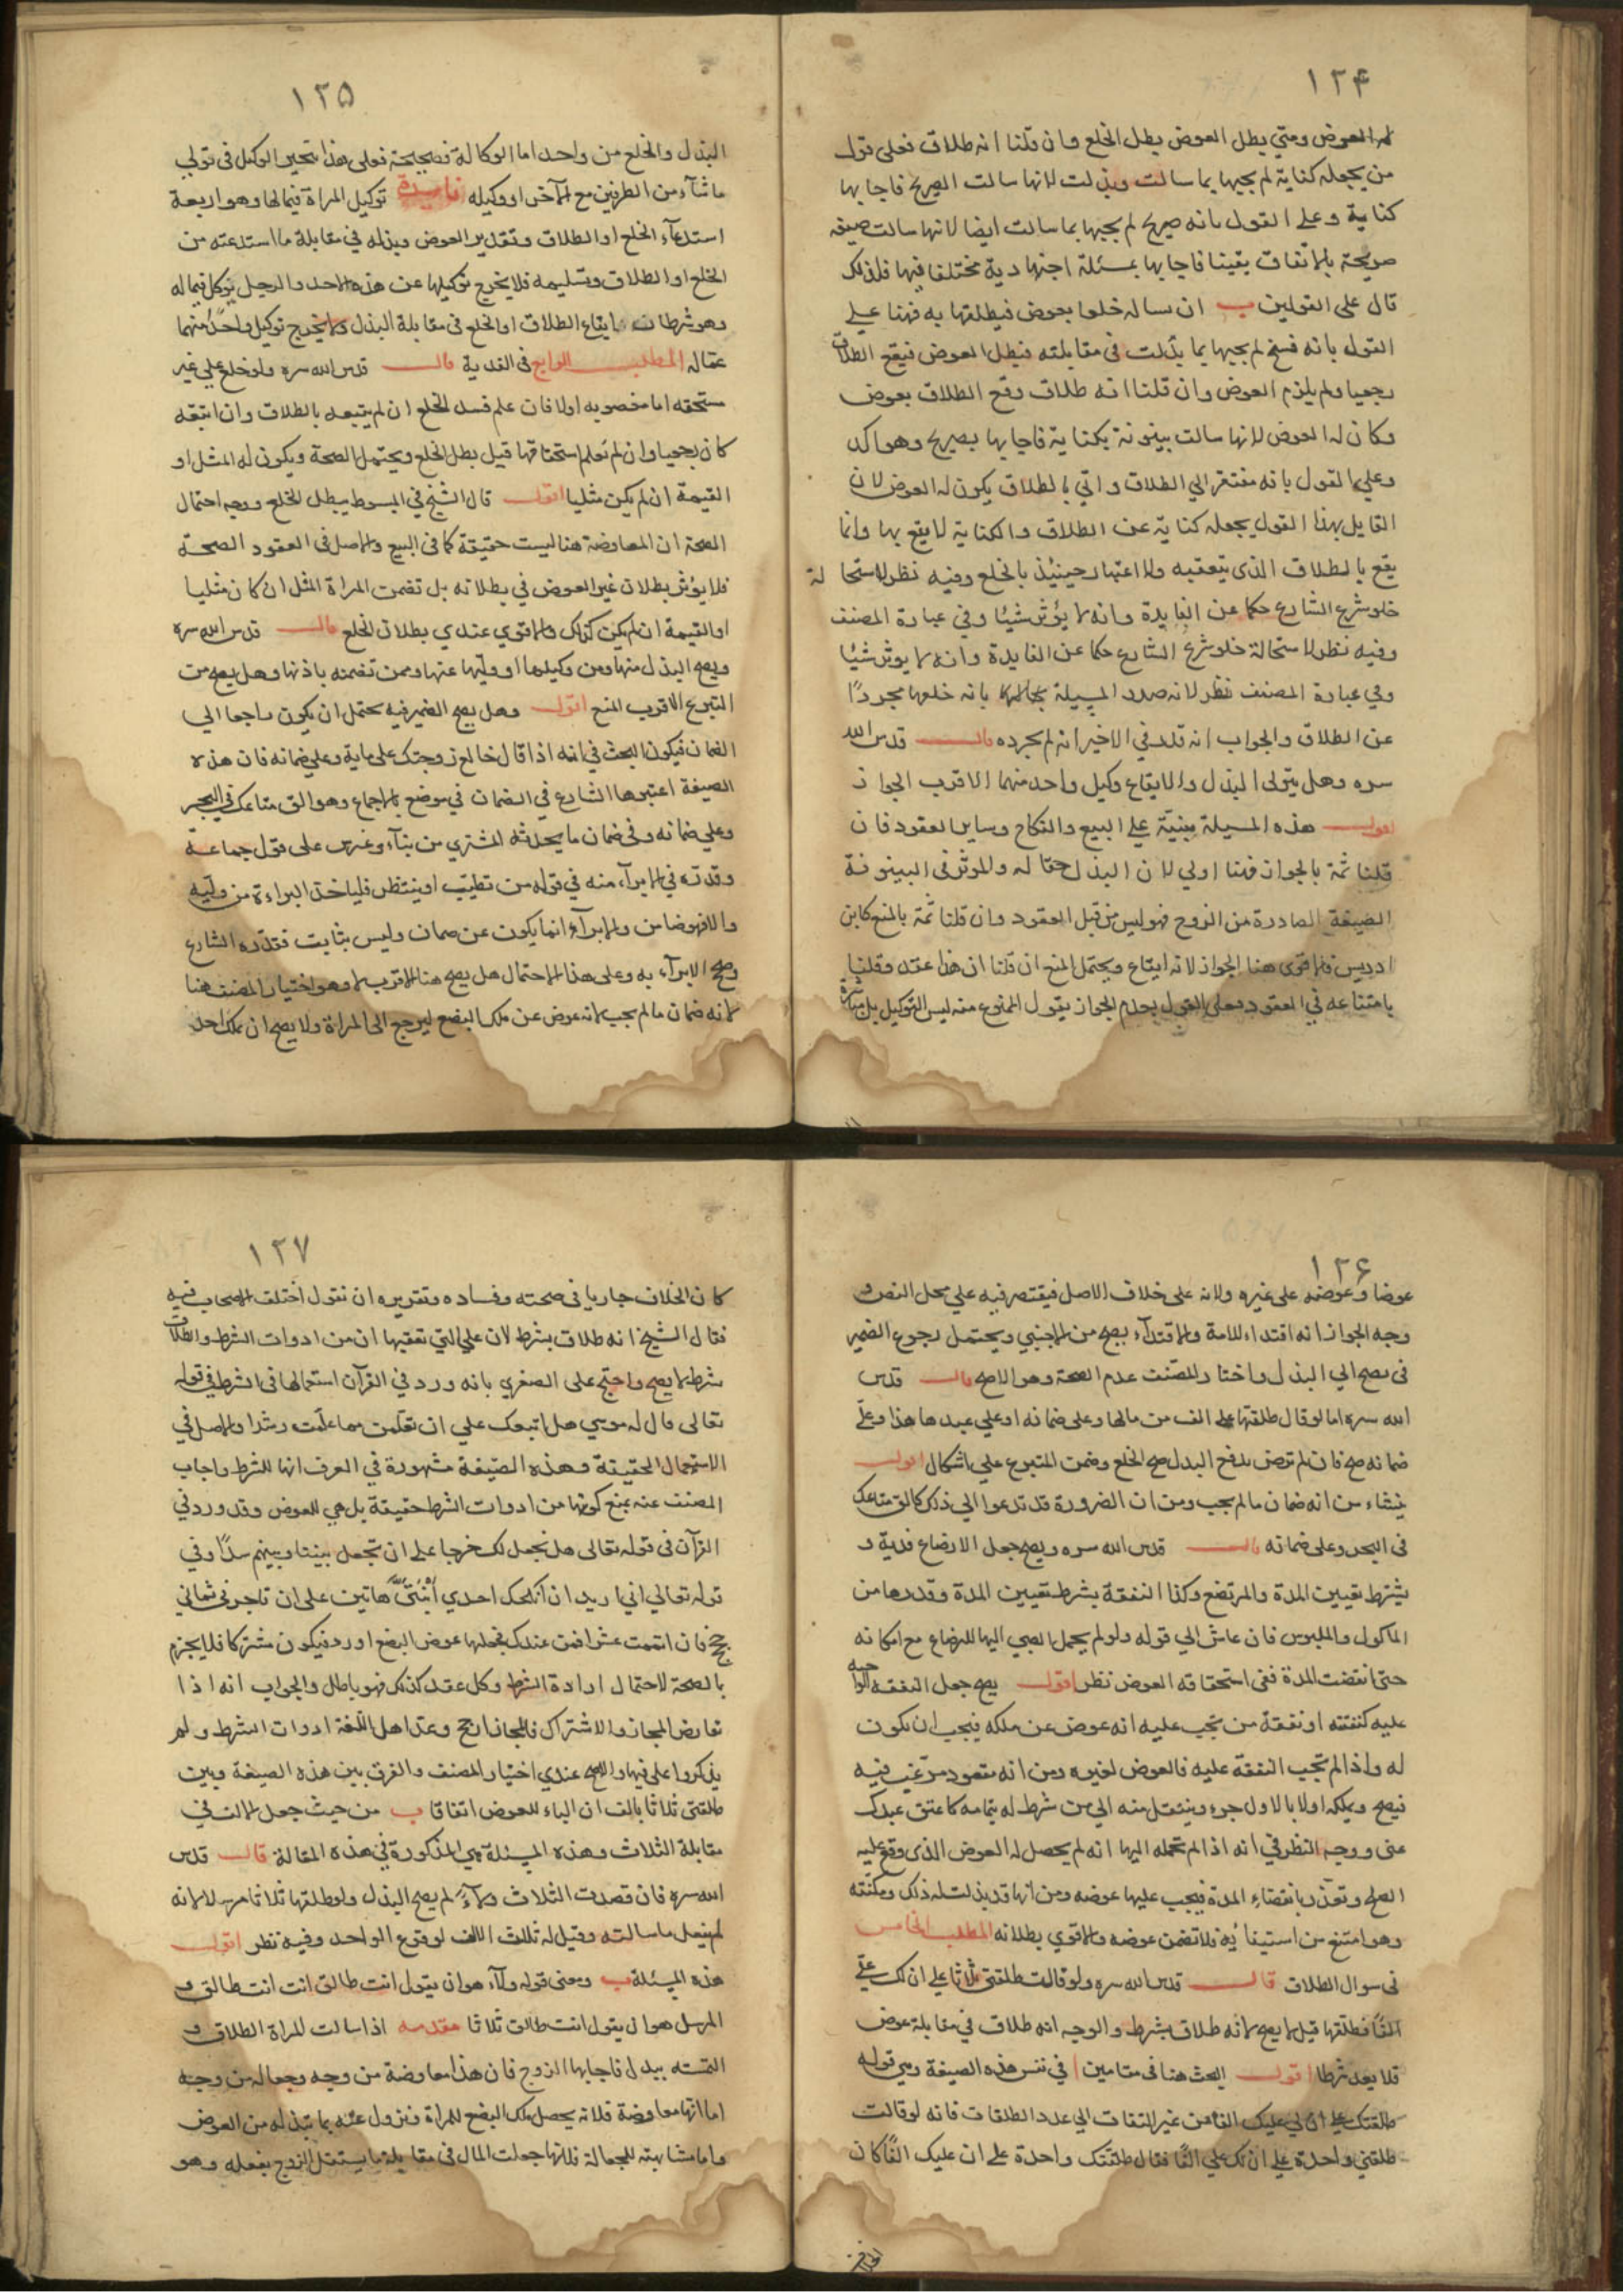 ١٢۴
له العوض ومتي بطل العوض بطل الخلع وان قلنا انه طلاق فعلى قول
من يجعله كناية لم يجبها بما سالت وبذلت لانها سالت الصريح فاجابها
كناية وعلى القول بانه صريح لم يجبها بما سالت ايضا لانها سالت صيغة
صريحة بالاتفاق يقينا فاجابها بمسئلة اجتهادية مختلفا فيها فلذلك
قال على القولين ب ان ساله خلعا بعوض فيطلقها به فهنا علي
القول بانه فسخ لم يجبها بما بذلت في مقابلته فبطل العوض فيقع الطلاق
رجعيا ولم يلزم العوض وان قلنا انه طلاق وقع الطلاق بعوض
وكان له العوض لانها سالت بينونة بكناية فاجابها بصريح وهو اكد
وعلي القول بانه مفتقر الي الطلاق واتي بالطلاق يكون له العوض لان
القايل بهذا القول يجعله كناية عن الطلاق والكناية لا يقع بها وانما
يقع بالطلاق الذي يتعقبه ولا اعتبار حينئذ بالخلع وفيه نظر لاستحالة
خلو شرع الشارع حكما عن الفايدة وانه لا يؤثر شيئا وفي عبارة المصنف
وفيه نظر لاستحالة خلو شرع الشارع حكما عن الفايدة وانه لا يوثر شيئا
وفي عبارة المصنف نظر لانه صدر المسيلة بانه خلعها مجردًا
عن الطلاق والجواب انه قلد في الاخير انه لم يجرده قالــ قدس الله
سره وهل يتولى البذل والايقاع وكيل واحد منهما الاقرب الجواز
اقولــ هذه المسيلة مبنية علي البيع والنكاح وساير العقود فان
قلنا ثمة بالجواز فهنا اولي لان البذل حقا له والموثر في البينونة
الصيغة الصادرة من الزوج فهو ليس من قبل العقود وان قلنا ثمة بالمنع كابن
ادريس فالاقوى هنا الجواز لانه ايقاع ويحتمل المنع ان قلنا ان هذا عقد وقلنا
بامتناعه في العقود فعلى القول بعدم الجواز يقول الممنوع منه ليس التوكيل بل مباشرة
١٢۵
البذل والخلع من واحد اما الوكالة فصحيحة فعلى هذا يتخير الوكيل في تولي
ما شآء من الطرفين مع الآخر او وكيله فايدة توكيل المراة فيما لها وهو اربعة
استدعآء الخلع او الطلاق وتقدير العوض وبذله في مقابلة ما استدعته من
الخلع او الطلاق وتسليمه فلا يخرج توكيلها عن هذه الاحد والرجل يوكل فيما له
وهو شرطان ايقاع الطلاق او الخلع في مقابلة البذل ولا يخرج توكيل واحد منهما
عما له المطلبــ الرابع في الفدية قالــ قدس الله سره ولو خلع علي غير
مستحقه اما مغصوبه او لا فان علم فسد الخلع ان لم يتبعه بالطلاق وان اتبعه
كان رجعيا وان لم يعلم استحقاقها قيل بطل الخلع ويحتمل الصحة ويكون له المثل او
القيمة ان لم يكن مثليا اقولــ قال الشيخ في المبسوط يبطل الخلع ووجه احتمال
الصحة ان المعاوضة هنا ليست حقيقة كما في البيع والاصل في العقود الصحة
فلا يؤثر بطلان غير العوض في بطلانه بل تضمن المراة المثل ان كان مثليا
او القيمة ان لم يكن كذلك والاقوي عندي بطلان الخلع قالــ قدس الله سره
ويصح البذل منها ومن وكيلها او وليها عنها وممن تضمنه باذنها وهل يصح من
المتبرع الاقرب المنع اقولــ وهل يصح الضمير فيه يحتمل ان يكون راجعا الي
الضمان فيكون البحث في انه اذا قال خالع زوجتك على ماية وعلي ضمانه فان هذه
الصيغة اعتبرها الشارع في الضمان في موضع بالاجماع وهو الق متاعك في البحر
وعلي ضمانه وفي ضمان ما يحدثه المشتري من بنآء وغرس على قول جماعة
وقدته في الابرآء منه في قوله من تطبب او تبيطر فلياخذ البراءة من وليه
والا فهو ضامن والابرآء انما يكون عن ضمان وليس بثابت فقدره الشارع
وصح الابرآء به وعلى هذا الاحتمال هل يصح هنا الاقرب لا وهو اختيار المصنف هنا
لانه ضمان ما لم يجب لانه عوض عن ملك البضع ليرجع الى المراة ولا يصح ان يملك احد
١٢۶
عوضا وعوضه على غيره ولانه على خلاف الاصل فيقتصر فيه علي محل النص و
وجه الجواز انه افتداء للامة والافتدآء يصح من الاجنبي ويحتمل رجوع الضمير
في يصح الي البذل واختار المصنف عدم الصحة وهو الاصح قالــ قدس
الله سره اما لو قال طلقتها على الف من مالها وعلى ضمانه او علي عبدها هذا وعلّي
ضمانه صح فان لم ترض بدفع البدل صح الخلع وضمن المتبرع علي اشكال اقولــ
ينشاء من انه ضمان ما لم يجب ومن ان الضرورة قد تدعوا الي ذلك كالق متاعك
في البحر وعلى ضمانه قالــ قدس الله سره ويصح جعل الارضاع فدية و
يشترط تعيين المدة والمرتضع وكذا النفقة بشرط تعيين المدة وقدرها من
الماكول والملبوس فان عاش الي قوله ولو لم يحمل الصبي اليها للرضاع مع امكانه
حتى انقضت المدة ففي استحقاقه العوض نظر اقولــ يصح جعل النفقة الواجبة
عليه كنفقته او نفقة من تجب عليه انه عوض عن ملكه فيجب ان يكون
له واذا لم تجب النفقة عليه فالعوض لغيره ومن انه مقصود مرغب فيه
فيصح ويملكه اولا بالاول جزء وينتقل منه الي من شرط له بتمامه كاعتق عبدك
عني ووجه النظر في انه اذا لم تحمله اليها انه لم يحصل له العوض الذي وقع عليه
العقد وتعذر بانقضاء المدة فيجب عليها عوضه ومن انها قد بذلت له ذلك ومكنته
وهو امتنع من استيفائه فلا تضمن عوضه والاقوي بطلانه المطلب الخامس
في سوال الطلاق قالــ قدس الله سره ولو قالت طلقني ثلاثا على ان لك علّي
الفًا فطلقها قيل لا يصح لانه طلاق بشرط والوجه انه طلاق في مقابلة عوض
فلا يعد شرطا اقولــ البحث هنا في مقامين ا في نفس هذه الصيغة وهي قوله
طلقتك على ان لي عليك الفا من غير التفات الي عدد الطلقات فانه لو قالت
طلقني واحدة علي ان لك علي الفًا فقال طلقتك واحدة علي ان عليك الفًا كان
١٢٧
كان الخلاف جاريا في صحته وفساده وتقريره ان نقول اختلف الاصحاب فيه
فقال الشيخ انه طلاق بشرط لان علي التي تعقبها ان من ادوات الشرط والطلاق
بشرط لا يصح واحتج على الصغري بانه ورد في القرآن استعمالها في الشرط في قوله
تعالى قال له موسي هل اتبعك علي ان تعلمن مما علمت رشدا والاصل في
الاستعمال الحقيقة وهذه الصيغة مشهورة في العرف انها للشرط واجاب
المصنف عنه بمنع كونها من ادوات الشرط حقيقة بل هي للعوض وقد ورد في
القرآن في قوله تعالى هل نجعل لك خرجا علي ان تجعل بيننا وبينهم سدًا وفي
قوله تعالي اني اريد ان انكحك احدي ابنتي هاتين على ان تاجرني ثماني
حجج فان اتممت عشرا فمن عندك فجعلها عوض البضع اورد فيكون مشتركا فلا يجزم
بالصحة لاحتمال ارادة الشرط وكل عقد كذلك فهو باطل والجواب انه اذا
تعارض المجاز والاشتراك فالمجاز ارجح وعد اهل اللغة ادوات الشرط ولم
يذكروا على فيها والاصح عندي اختيار المصنف والفرق بين هذه الصيغة وبين
طلقني ثلاثا بالف ان الباء للعوض اتفاقا ب من حيث جعل الالف في
مقابلة الثلاث وهذه المسئلة هي المذكورة في هذه المقالة قالــ قدس
الله سره فان قصدت الثلاث ولآءً لم يصح البذل ولو طلقها ثلاثا مرسلا لانه
لم يفعل ما سالته وقيل له ثلث الالف لوقوع الواحد وفيه نظر اقولــ
هذه المسئلة ب ومعنى قوله ولآء هو ان يقول انت طالق انت انت طالق و
المرسل هو ان يقول انت طالق ثلاثا مقدمه اذا سالت المراة الطلاق و
التمسته ببدل فاجابها الزوج فان هذا معاوضة من وجه وجعالة من وجه
اما انها معاوضة فلانه يحصل ملك البضع للمراة ونزول عنه بما تبذله من العوض
واما مشابهته للجعالة فلانها جعلت المال في مقابلة ما يستقل الزوج بفعله وهو